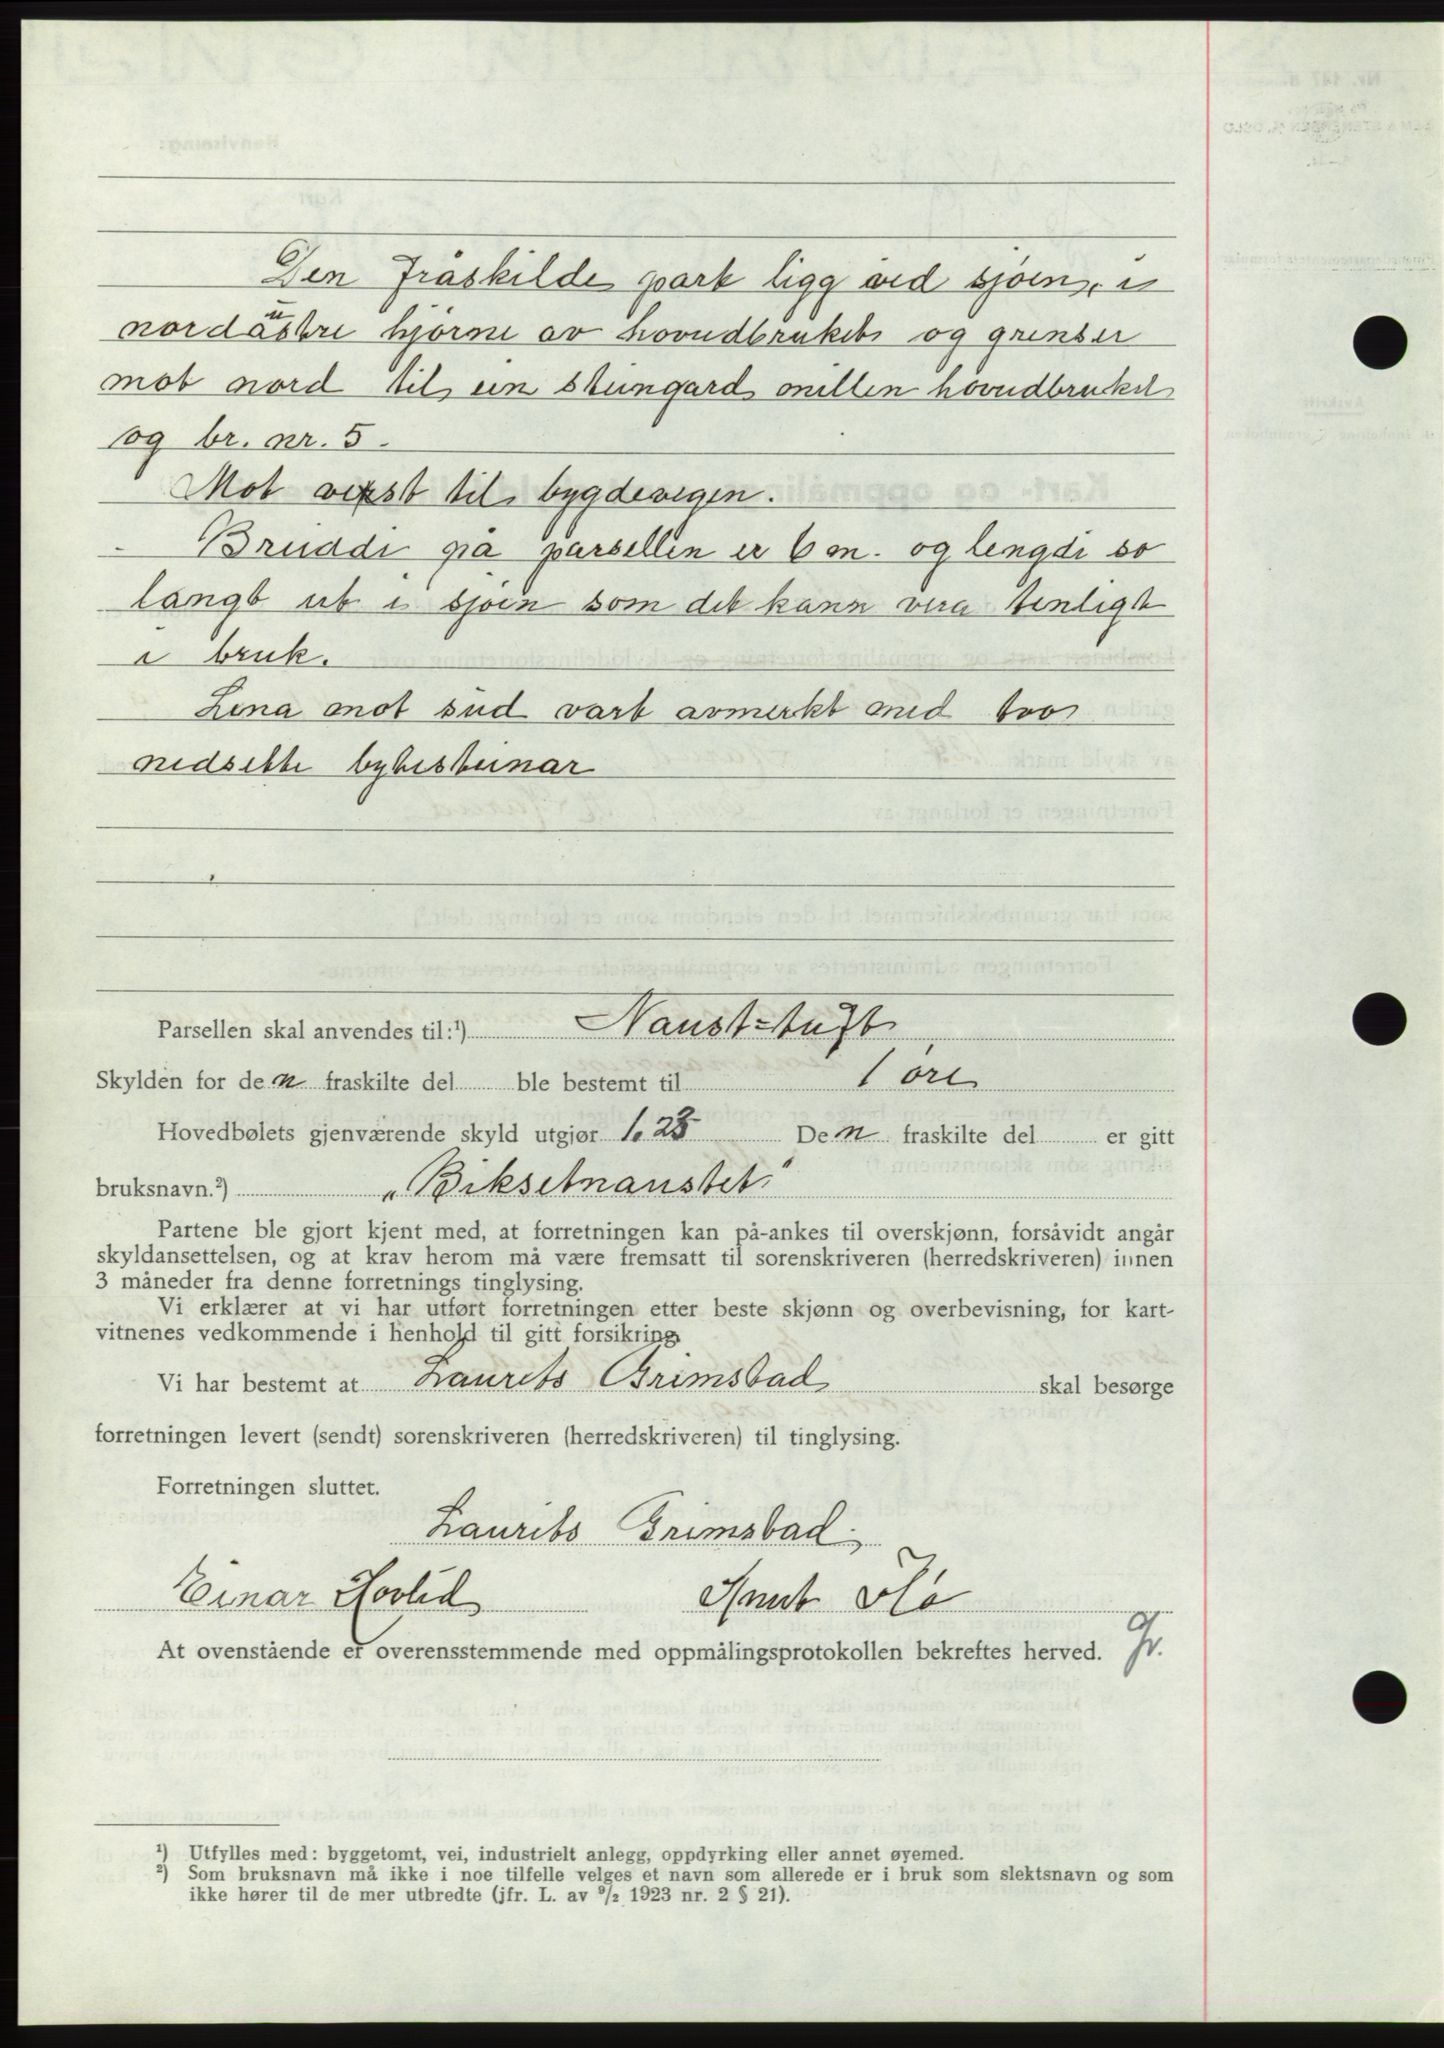 Den fråskilde part ligg ved sjøen, i
nordaustre hjørne av hovudbruket og grenser
mot nord til ein steingard millen hovudbruket
og br. nr. 5.
Mot vest til bygdevegen.
Breiddi på parsellen er 6 m. og lengdi so
langt ut i sjøen som det kann vera tenligt
i bruk.
Lina mot sud vart avmerkt med tvo
nedsette bytesteinar
Parsellen skal anvendes til:¹) Naust-tuft
Skylden for den fraskilte del ble bestemt til 1 øre
Hovedbølets gjenværende skyld utgjør 1.23 Den fraskilte del er gitt
bruksnavn.²) „Biksetnaustet"
Partene ble gjort kjent med, at forretningen kan på-ankes til overskjønn, forsåvidt angår
skyldansettelsen, og at krav herom må være fremsatt til sorenskriveren (herredskriveren) innen
3 måneder fra denne forretnings tinglysing.
Vi erklærer at vi har utført forretningen etter beste skjønn og overbevisning, for kart-
vitnenes vedkommende i henhold til gitt forsikring.
Vi har bestemt at Laurits Grimstad skal besørge
forretningen levert (sendt) sorenskriveren (herredskriveren) til tinglysing.
Forretningen sluttet.
Laurits Grimstad.
Einar Hovlid Knut Flø
At ovenstående er overensstemmende med oppmålingsprotokollen bekreftes herved. Gr.
¹) Utfylles med: byggetomt, vei, industrielt anlegg, oppdyrking eller annet øyemed.
²) Som bruksnavn må ikke i noe tilfelle velges et navn som allerede er i bruk som slektsnavn og som
ikke hører til de mer utbredte (jfr. L. av ⁹/₂ 1923 nr. 2 § 21).